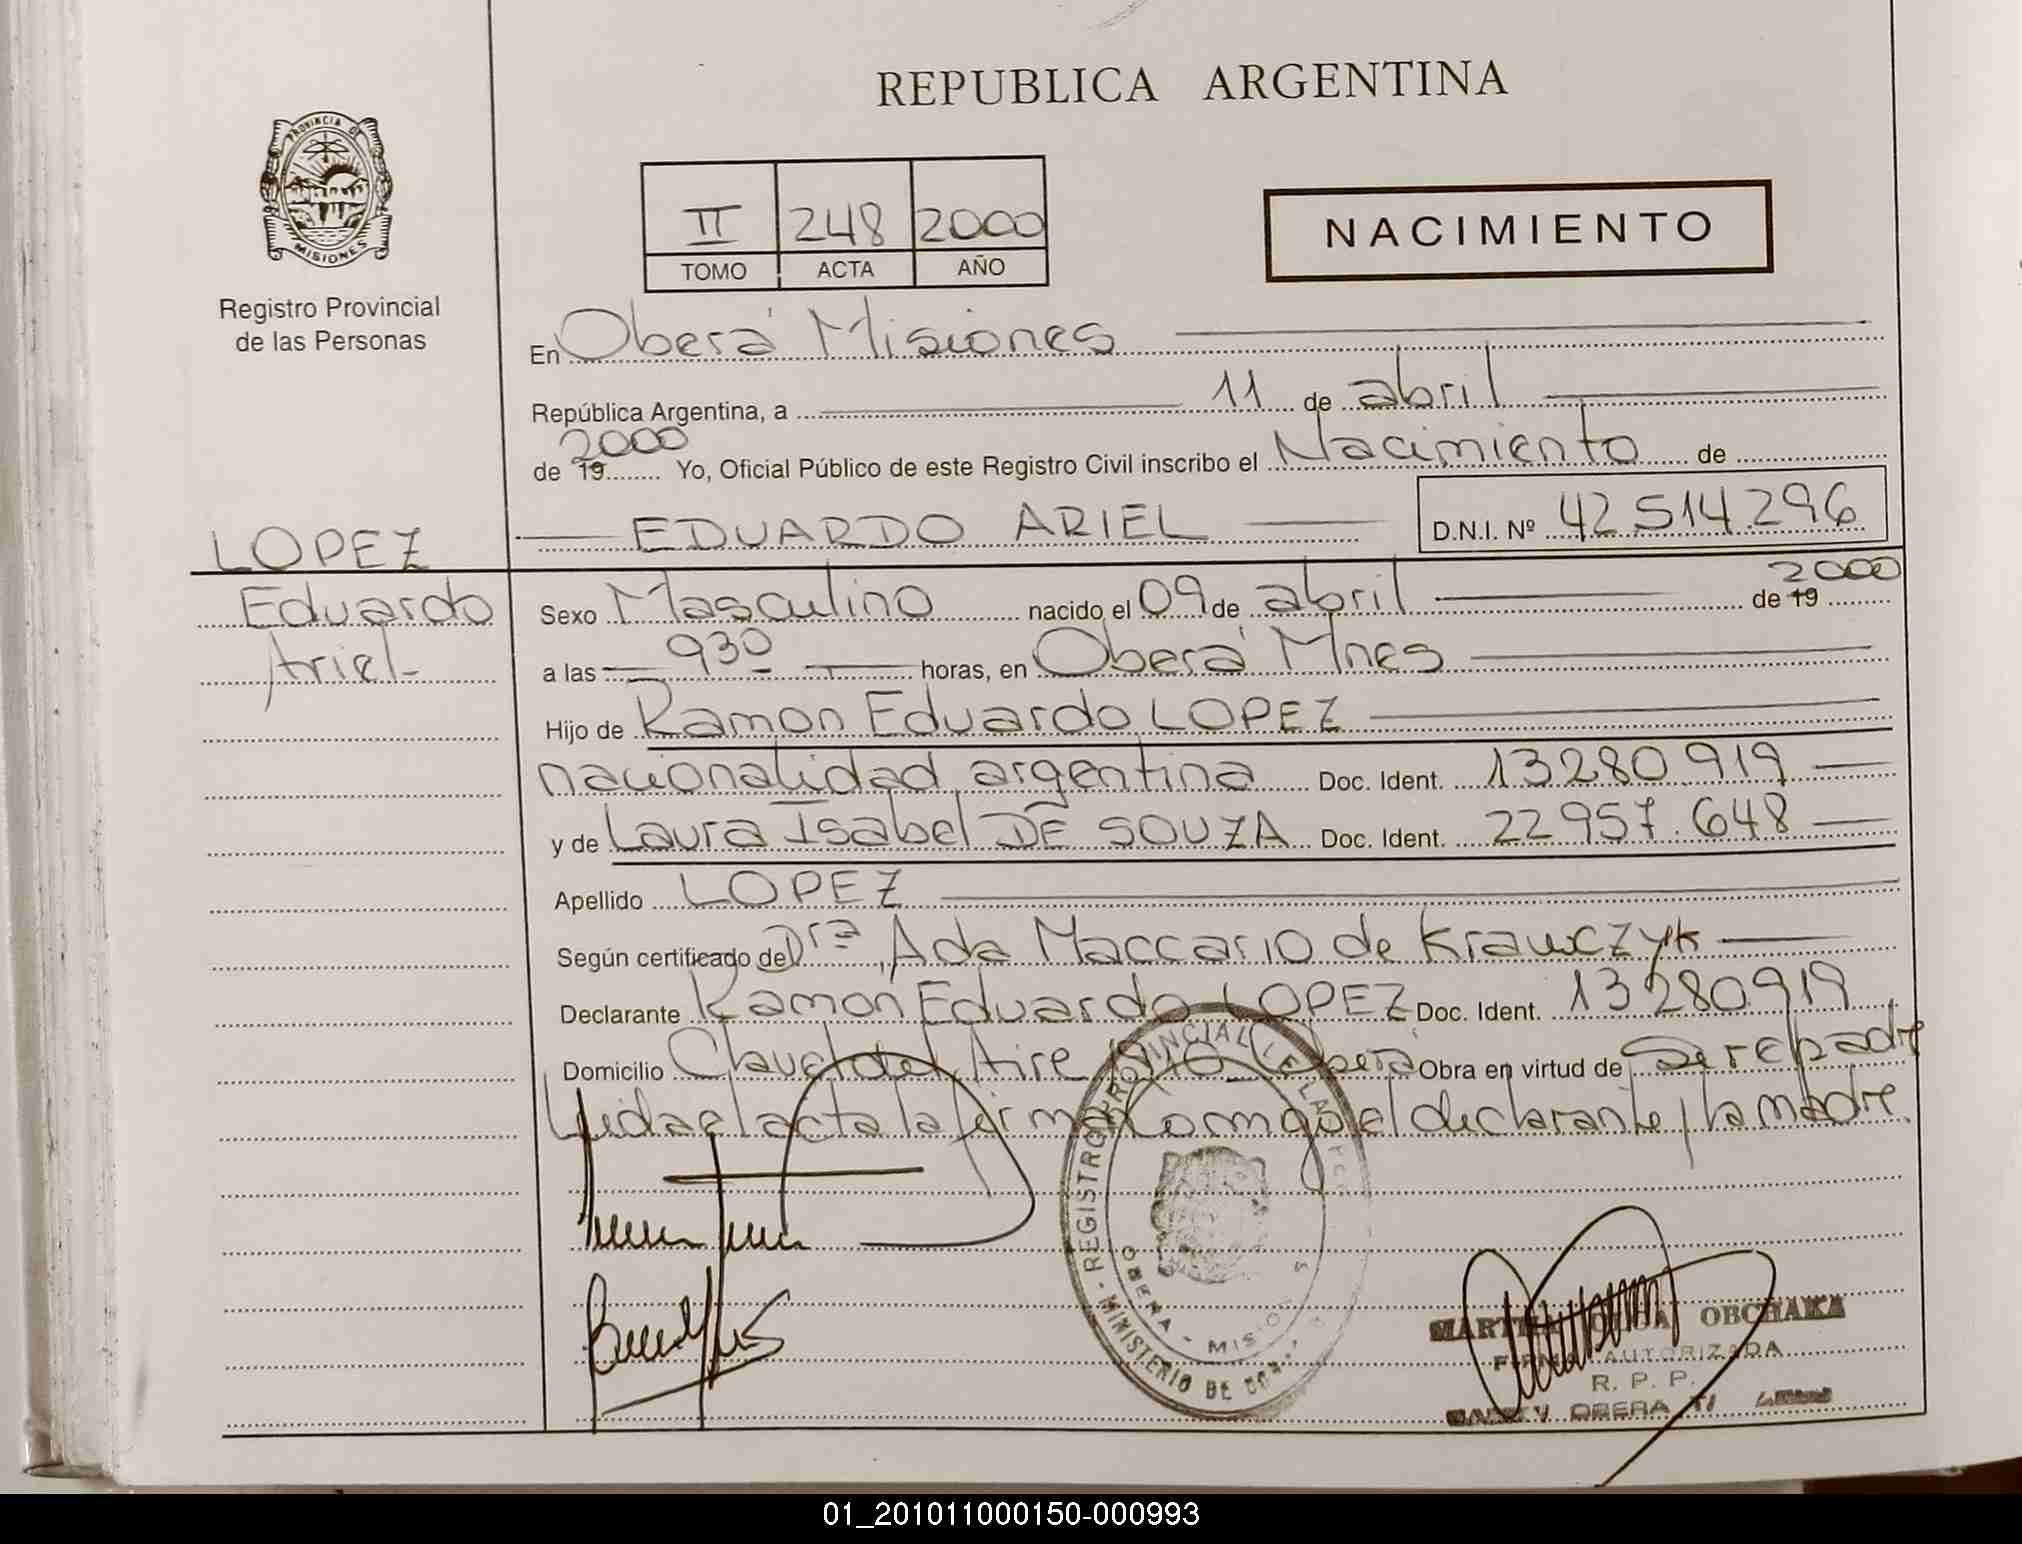 REPUBLICA ARGENTINA
PROVINCIA DE
MISIONES
Registro Provincial
de las Personas
II 248 2000
TOMO ACTA AÑO
NACIMIENTO
En Oberá Misiones
República Argentina, a 11 de abril
de 19 2000 Yo, Oficial Público de este Registro Civil inscribo el Nacimiento de
EDUARDO ARIEL D.N.I. Nº 42514.296
LOPEZ
Eduardo
Ariel
Sexo Masculino nacido el 09 de abril de 19 2000
a las 930 horas, en Oberá Mnes
Hijo de Ramon Eduardo LOPEZ
nacionalidad argentina Doc. Ident. 13280919
y de Laura Isabel DE SOUZA Doc. Ident. 22957.648
Apellido LOPEZ
Según certificado de Dra Ada Maccario de Krawczyk
Declarante Ramon Eduardo LOPEZ Doc. Ident. 13280919
Domicilio Clavel del Aire Oberá Obra en virtud de ser el padre
Leida el acta la firman conmigo el declarante y la madre.
REGISTRO PROVINCIAL DE LAS
OBERA - MISIONES
MINISTERIO DE
MARTHA OLGA OBCHAKA
FIRMA AUTORIZADA
R. P. P.
OBERA
01_201011000150-000993